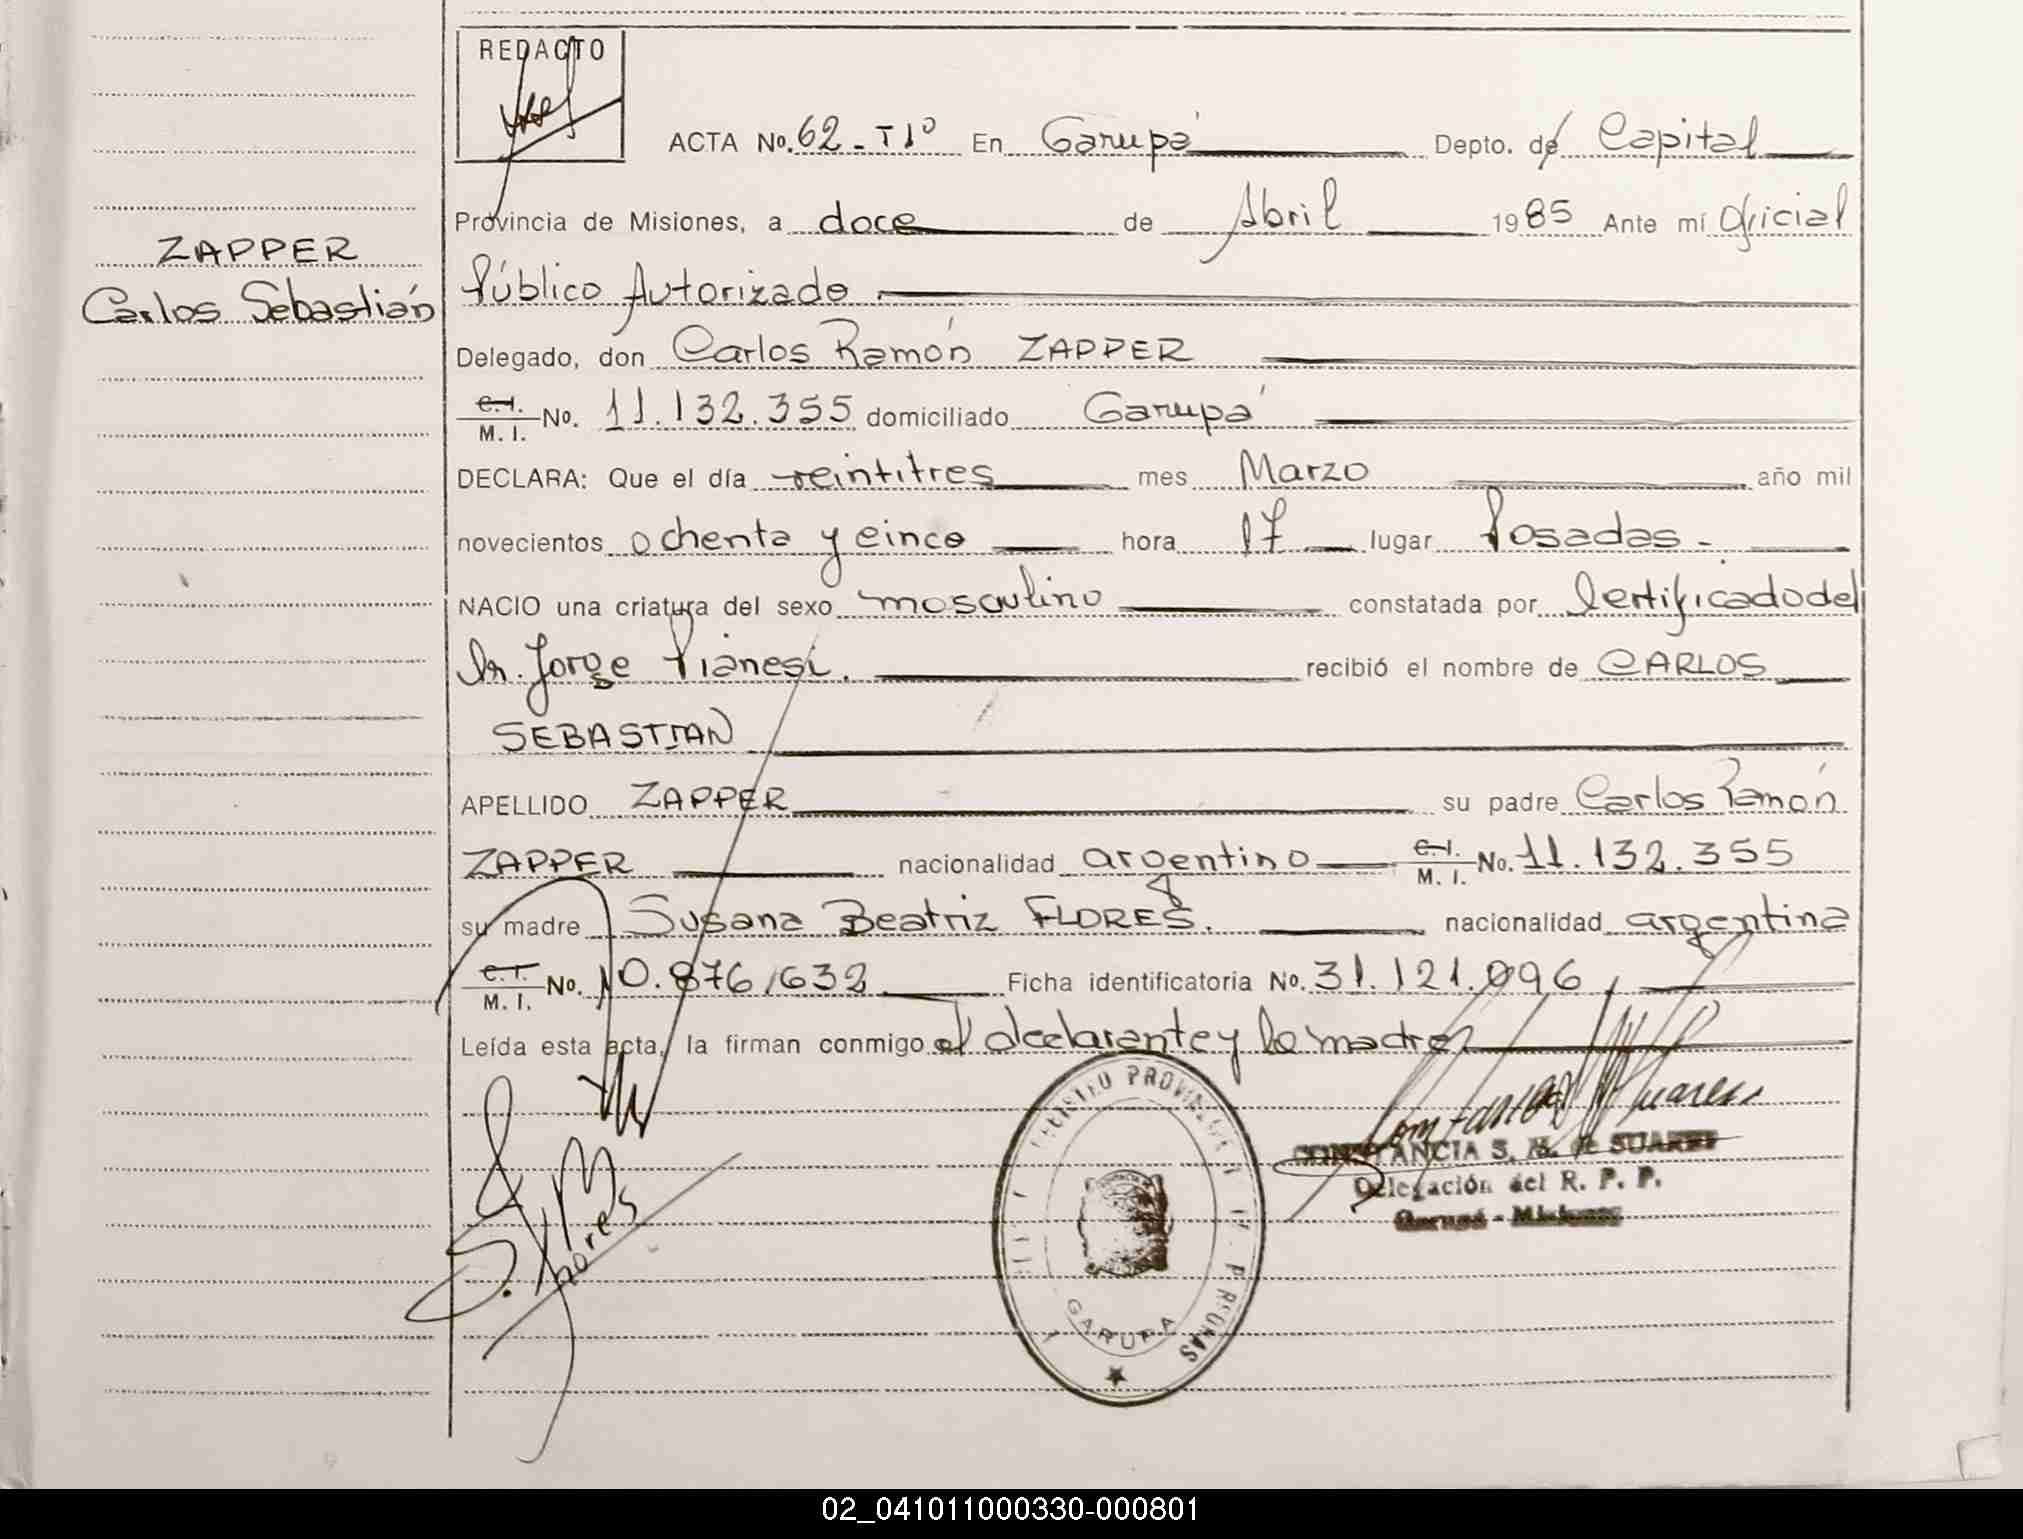 REDACTO
ACTA No. 62 - T1º En Garupá Depto. de Capital
Provincia de Misiones, a doce de Abril 1985 Ante mí Oficial
ZAPPER
Carlos Sebastián
Público Autorizado
Delegado, don Carlos Ramón ZAPPER
C. I.
M. I. No. 11.132.355 domiciliado Garupá
DECLARA: Que el día veintitres mes Marzo año mil
novecientos ochenta y cinco hora 17 lugar Posadas.-
NACIO una criatura del sexo masculino constatada por Certificado del
Dr. Jorge Pianesi. recibió el nombre de CARLOS
SEBASTIAN
APELLIDO ZAPPER su padre Carlos Ramón
ZAPPER nacionalidad argentino C. I.
M. I. No. 11.132.355
su madre Susana Beatriz FLORES. nacionalidad argentina
C. I.
M. I. No. 10.876.632 Ficha identificatoria No. 31.121.096
Leída esta acta, la firman conmigo el declarante y la madre
REGISTRO PROVINCIAL PERSONAS
GARUPA
S. Flores
CONSTANCIA S. M. de SUAREZ
Delegación del R. P. P.
Garupá - Misiones
02_041011000330-000801